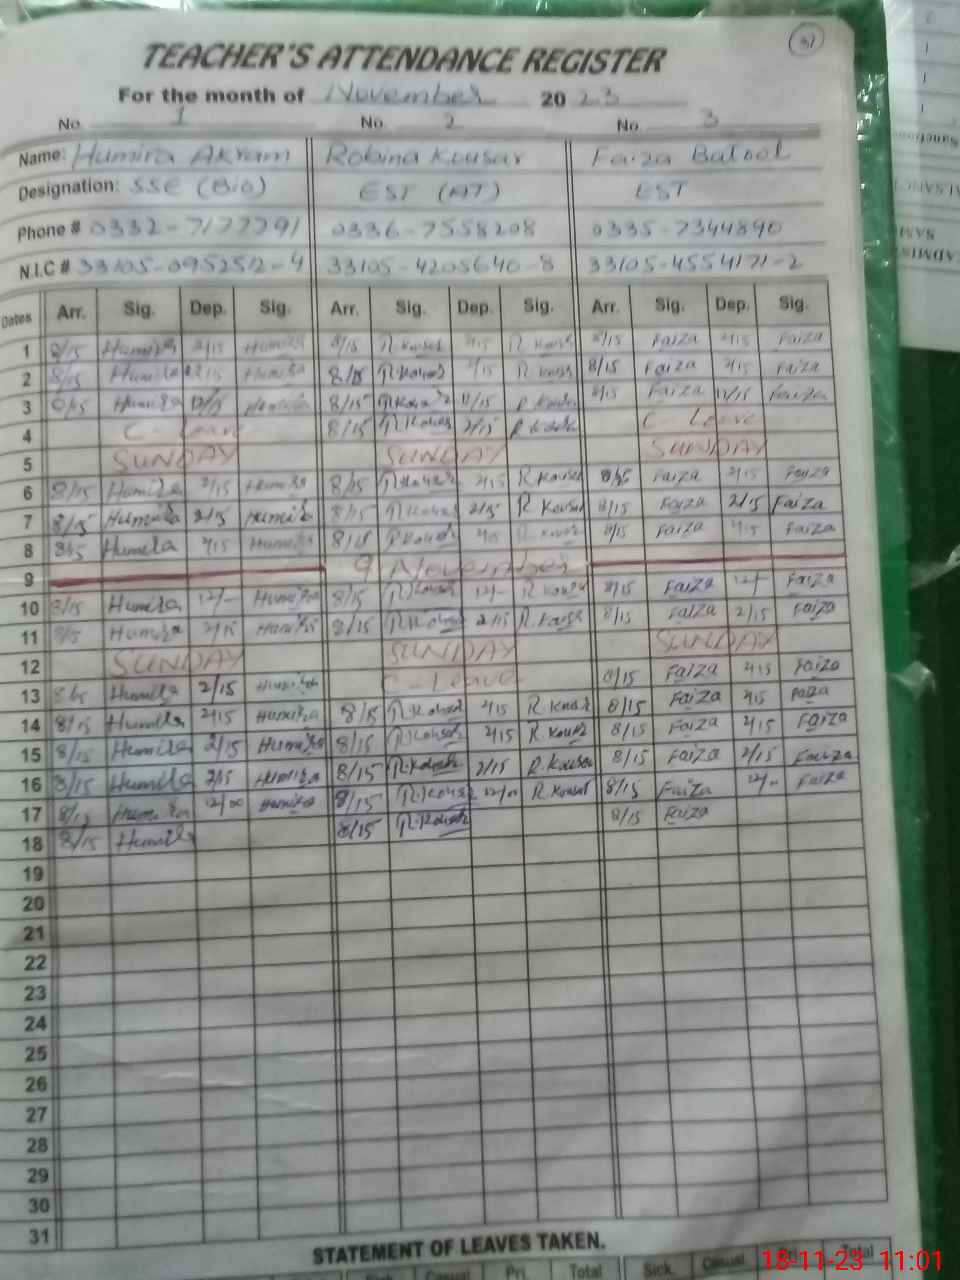 31
TEACHER'S ATTENDANCE REGISTER
For the month of November 2023
No. 1 No. 2 No. 3
Name: Humira Akram Robina Kousar Faiza Batool
Designation: SSE (Bio) EST (AT) EST
Phone # 0332-7177791 0336-7558208 0335-7344890
N.I.C # 33105-0952512-4 33105-4205640-8 33105-4554171-2
Dates Arr. Sig. Dep. Sig. Arr. Sig. Dep. Sig. Arr. Sig. Dep. Sig.
1 8/15 Humira 2/15 Humira 8/15 R.Kousar 2/15 R.Kousar 8/15 Faiza 2/15 Faiza
2 8/15 Humira 2/15 Humira 8/15 R.Kousar 2/15 R.Kousar 8/15 Faiza 2/15 Faiza
3 8/15 Humira 12/15 Humira 8/15 R.Kousar 12/15 R.Kousar 8/15 Faiza 12/15 Faiza
4 C-Leave 8/15 R.Kousar 2/15 R.Kousar C-Leave
5 SUNDAY SUNDAY SUNDAY
6 8/15 Humira 2/15 Humira 8/15 R.Kousar 2/15 R.Kousar 8/15 Faiza 2/15 Faiza
7 8/15 Humira 2/15 Humira 8/15 R.Kousar 2/15 R.Kousar 8/15 Faiza 2/15 Faiza
8 8/15 Humira 2/15 Humira 8/15 R.Kousar 2/15 R.Kousar 8/15 Faiza 2/15 Faiza
9 9 November
10 8/15 Humira 12/- Humira 8/15 R.Kousar 12/- R.Kousar 8/15 Faiza 12/- Faiza
11 8/15 Humira 2/15 Humira 8/15 R.Kousar 2/15 R.Kousar 8/15 Faiza 2/15 Faiza
12 SUNDAY SUNDAY SUNDAY
13 8/15 Humira 2/15 Humira C-Leave 8/15 Faiza 2/15 Faiza
14 8/15 Humira 2/15 Humira 8/15 R.Kousar 2/15 R.Kousar 8/15 Faiza 2/15 Faiza
15 8/15 Humira 2/15 Humira 8/15 R.Kousar 2/15 R.Kousar 8/15 Faiza 2/15 Faiza
16 8/15 Humira 2/15 Humira 8/15 R.Kousar 2/15 R.Kousar 8/15 Faiza 2/15 Faiza
17 8/15 Humira 12/00 Humira 8/15 R.Kousar 12/00 R.Kousar 8/15 Faiza 12/00 Faiza
18 8/15 Humira 8/15 R.Kousar 8/15 Faiza
19
20
21
22
23
24
25
26
27
28
29
30
31
STATEMENT OF LEAVES TAKEN.
Sick. Casual Pri. Total Sick. Casual Pri. Total
18-11-23 11:01